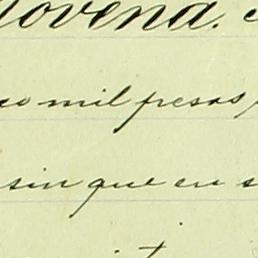 Novena.
mil pesos
sin que en s